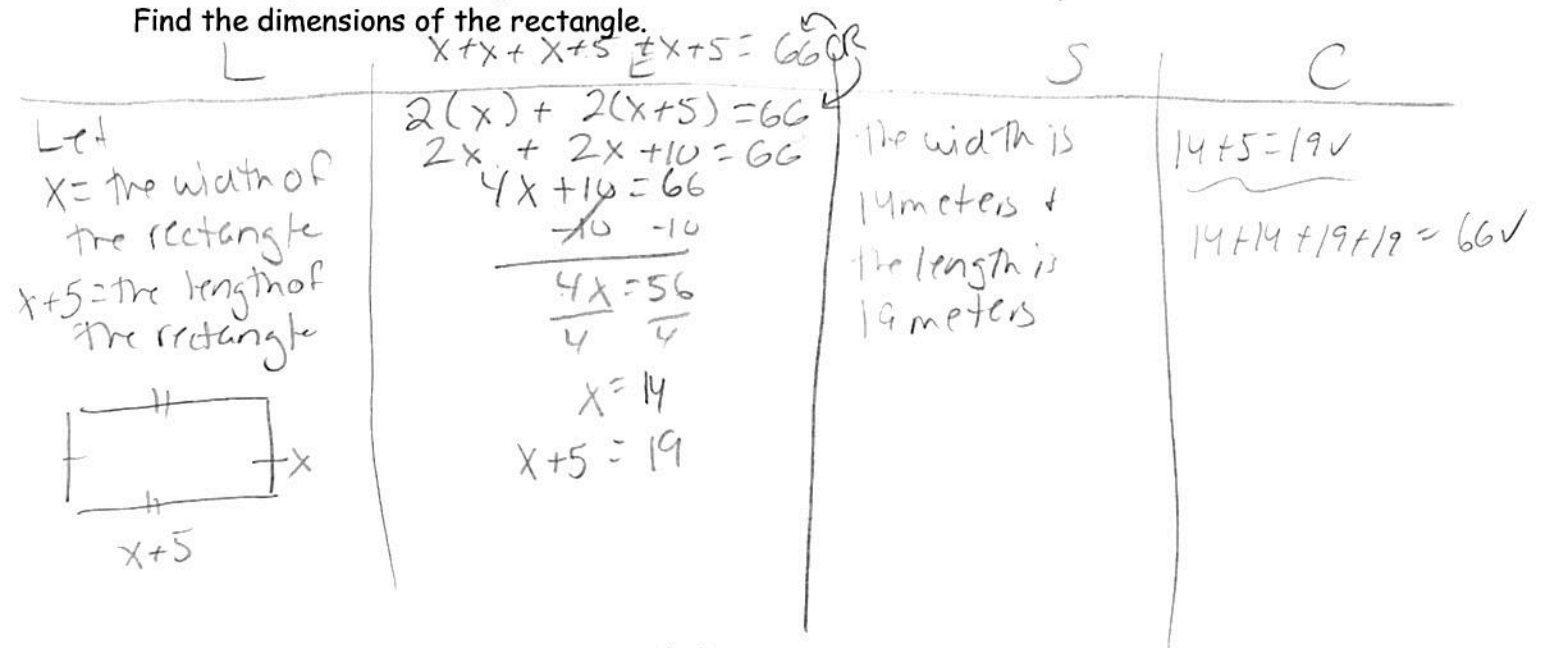 Find the dimensions of the rectangle.
x+x+x+5+x+5=66 OR
L
E
S
C
Let
x= the width of
the rectangle
x+5=the length of
the rectangle
x
x+5
2(x)+ 2(x+5)=66
2x + 2x+10=66
4x+10=66
-10 -10
4x=56
4 4
x=14
x+5=19
The width is
14meters +
the length is
19meters
14+5=19✓
14+14+19+19=66✓